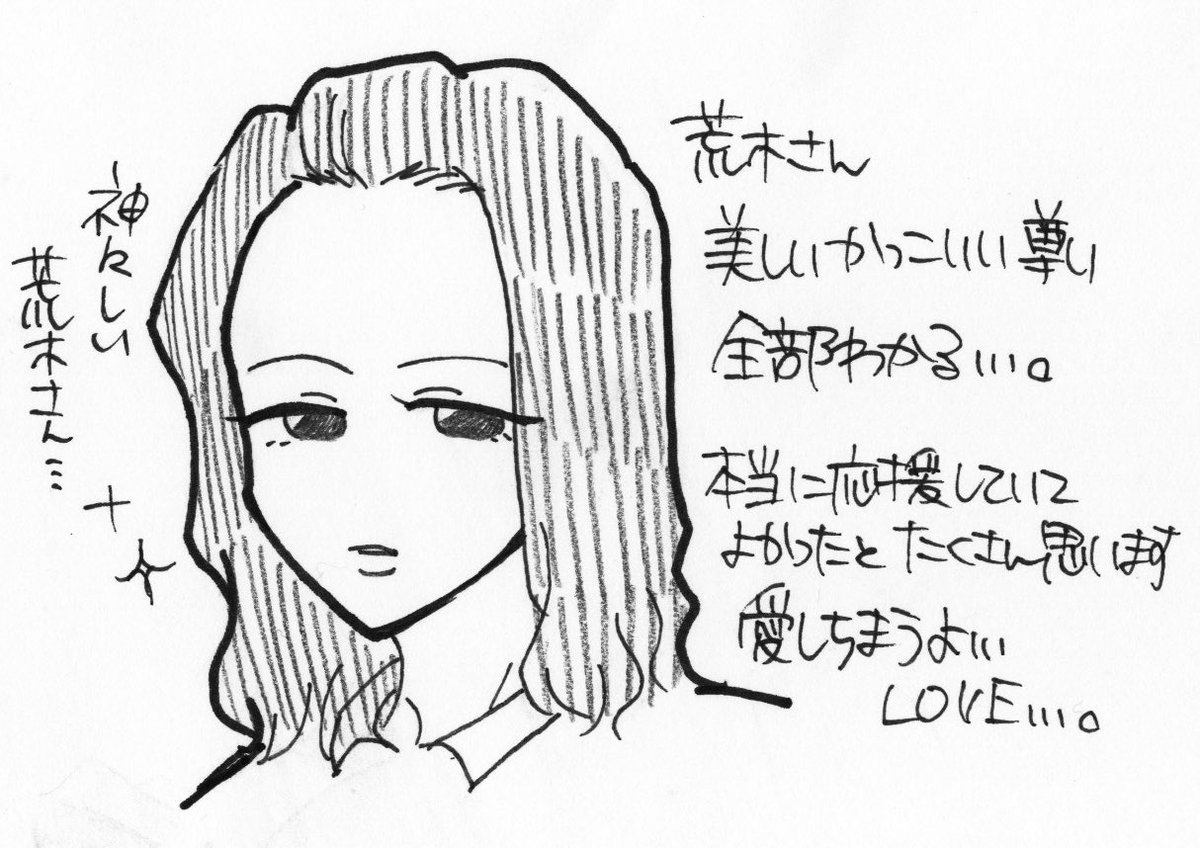 荒木さん
美しいかっこいい尊い
全部わかる…。
本当に応援していて
よかったと たくさん思います
愛しちまうよ…
LOVE…。
神々しい
荒木さん…